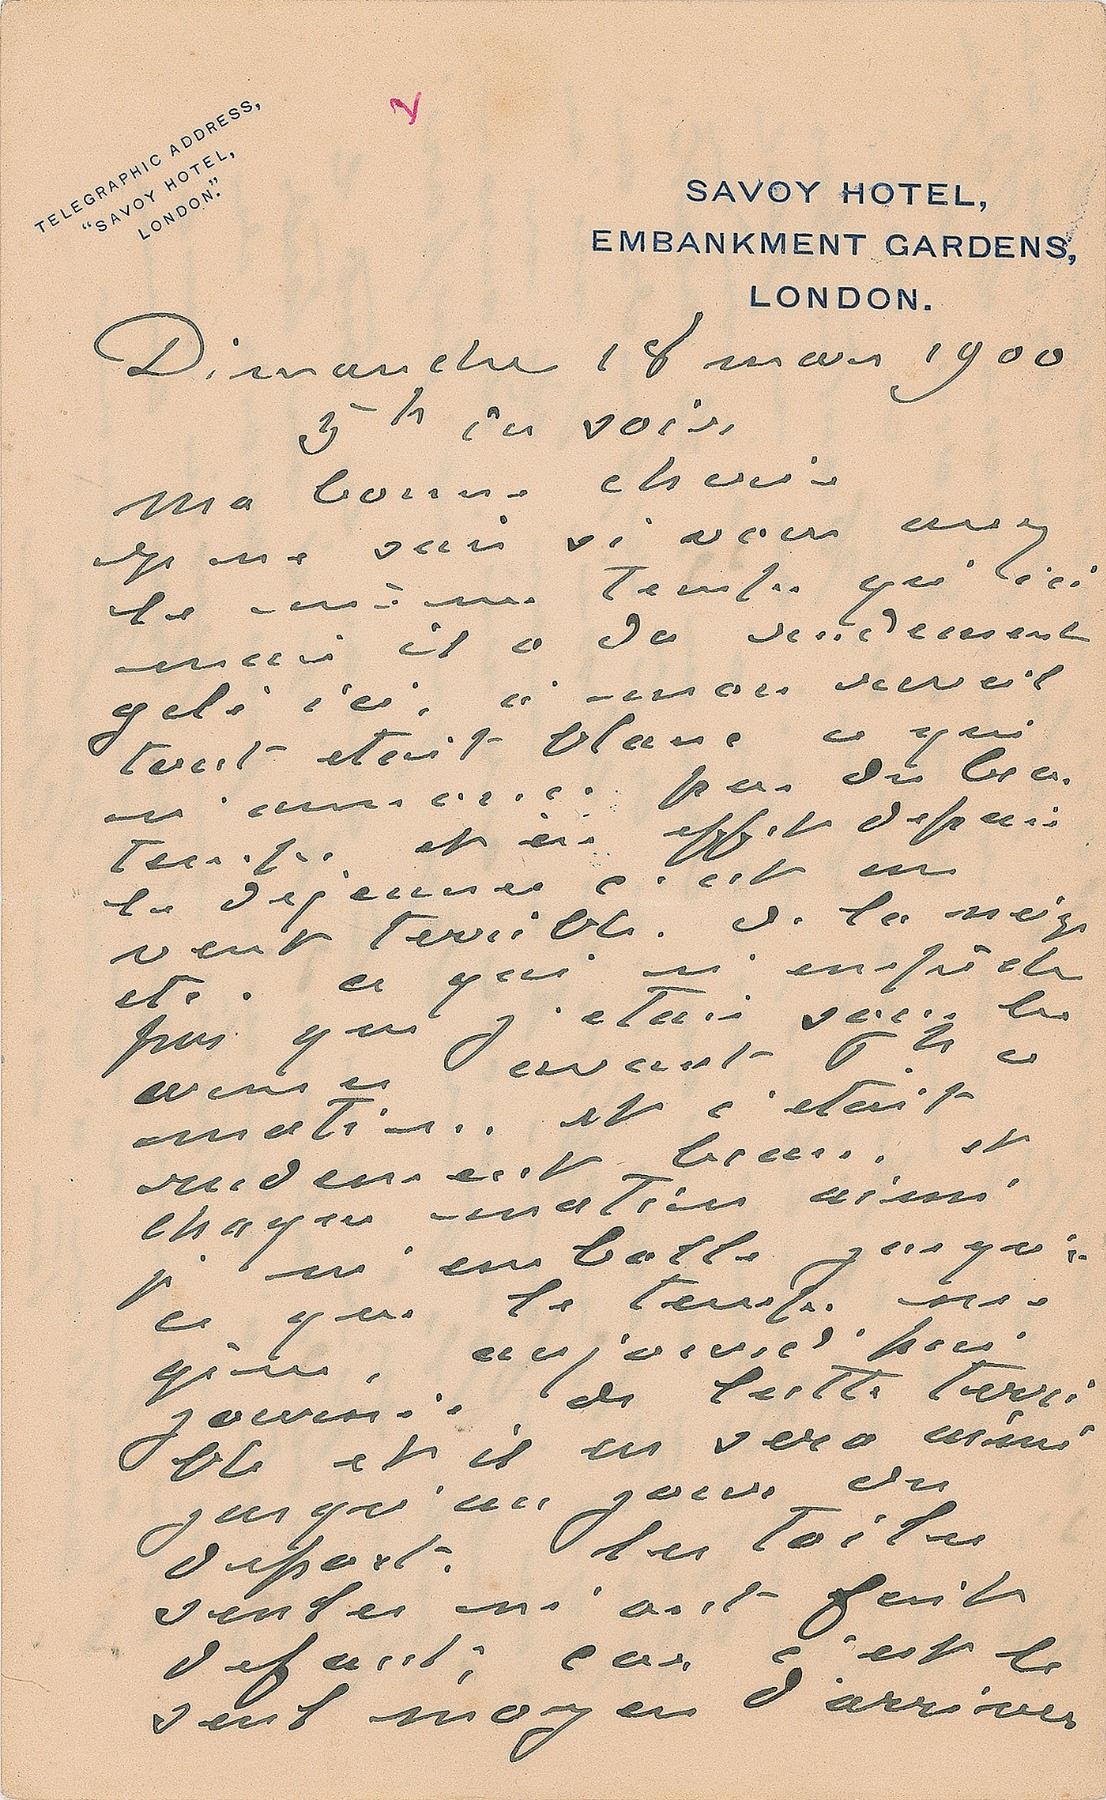 TELEGRAPHIC ADDRESS,
"SAVOY HOTEL,
LONDON."
SAVOY HOTEL,
EMBANKMENT GARDENS,
LONDON.
Dimanche 18 mars 1900
5h du soir,
Ma bonne cherie
je ne sais si vous avez
le même temps qu'ici
mais il a du rudement
gelé ici, à mon reveil
tout etait blanc ce qui
n'annoncait pas du beau
temps. et en effet depuis
le dejeuner c'est un
vent terrible. de la neige
etc. ce qui n'empêche
pas que j'etais sous les
armes avant 6h ce
matin. et c'etait
rudement beau. et
chaque matin ainsi
je m'emballe jusqu'à
ce que le temps me
gêne, aujourd'hui
journée de lutte terri
ble et il en sera ainsi
jusqu'au jour du
depart. les toiles
seules m'ont fait
defaut, car c'est le
seul moyen d'arriver